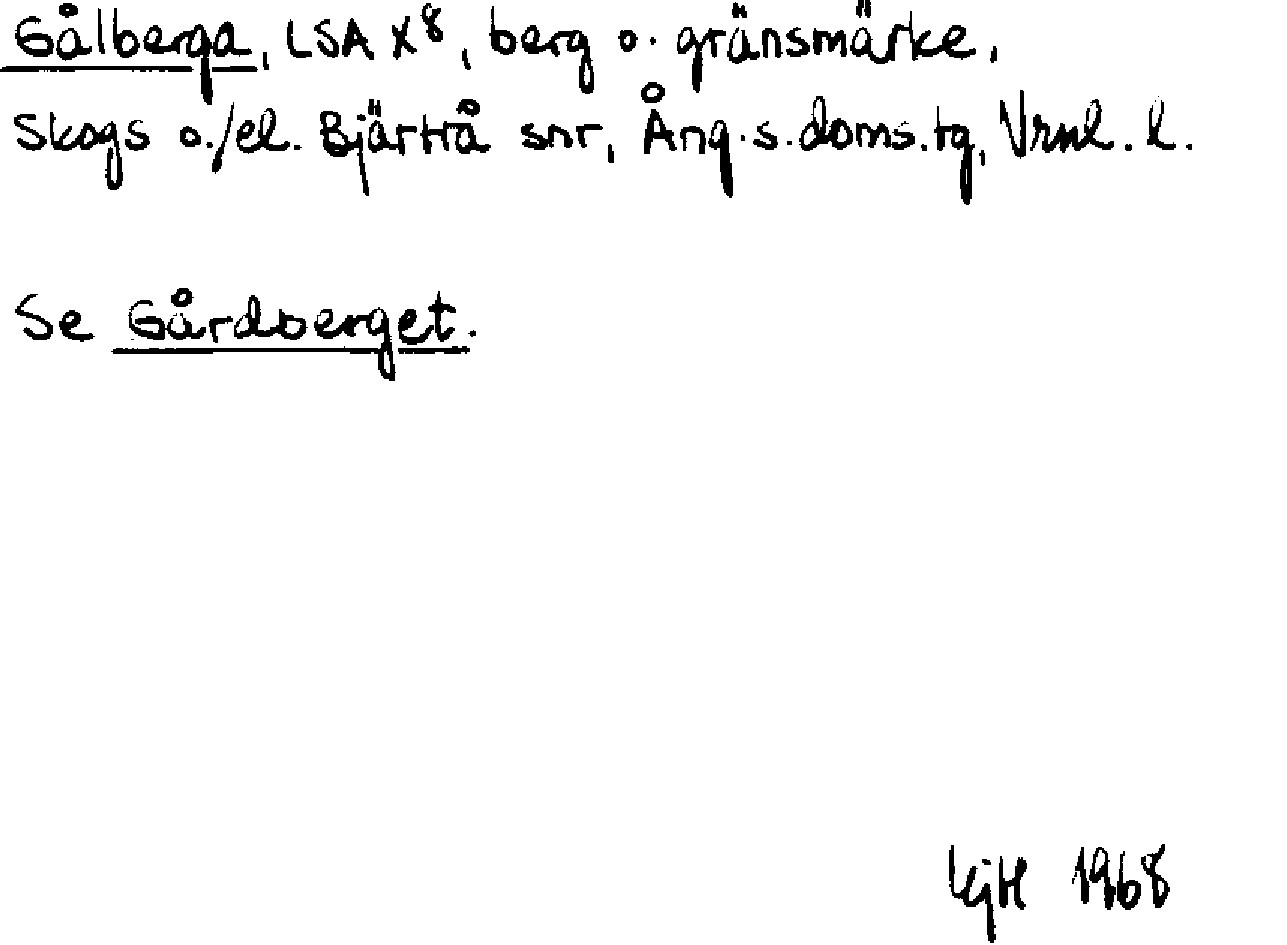 Gålberga, LSA X8, berg o. gränsmärke,
Skogs o./el. Bjärtrå snr, Ång.s.doms.tg, Vrnl. l.
Se Gårdberget.
KjH 1968